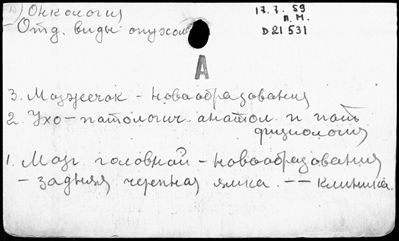 Онкология
17.7.59
- Отд. виды опухол
Л.М.
D21531
А
3. Мозжечок - новообразования
2. Ухо - патологич. анатом. и пат.
физиология
1. Мозг головной - новообразования
- задняя черепная ямка. -- клиника.